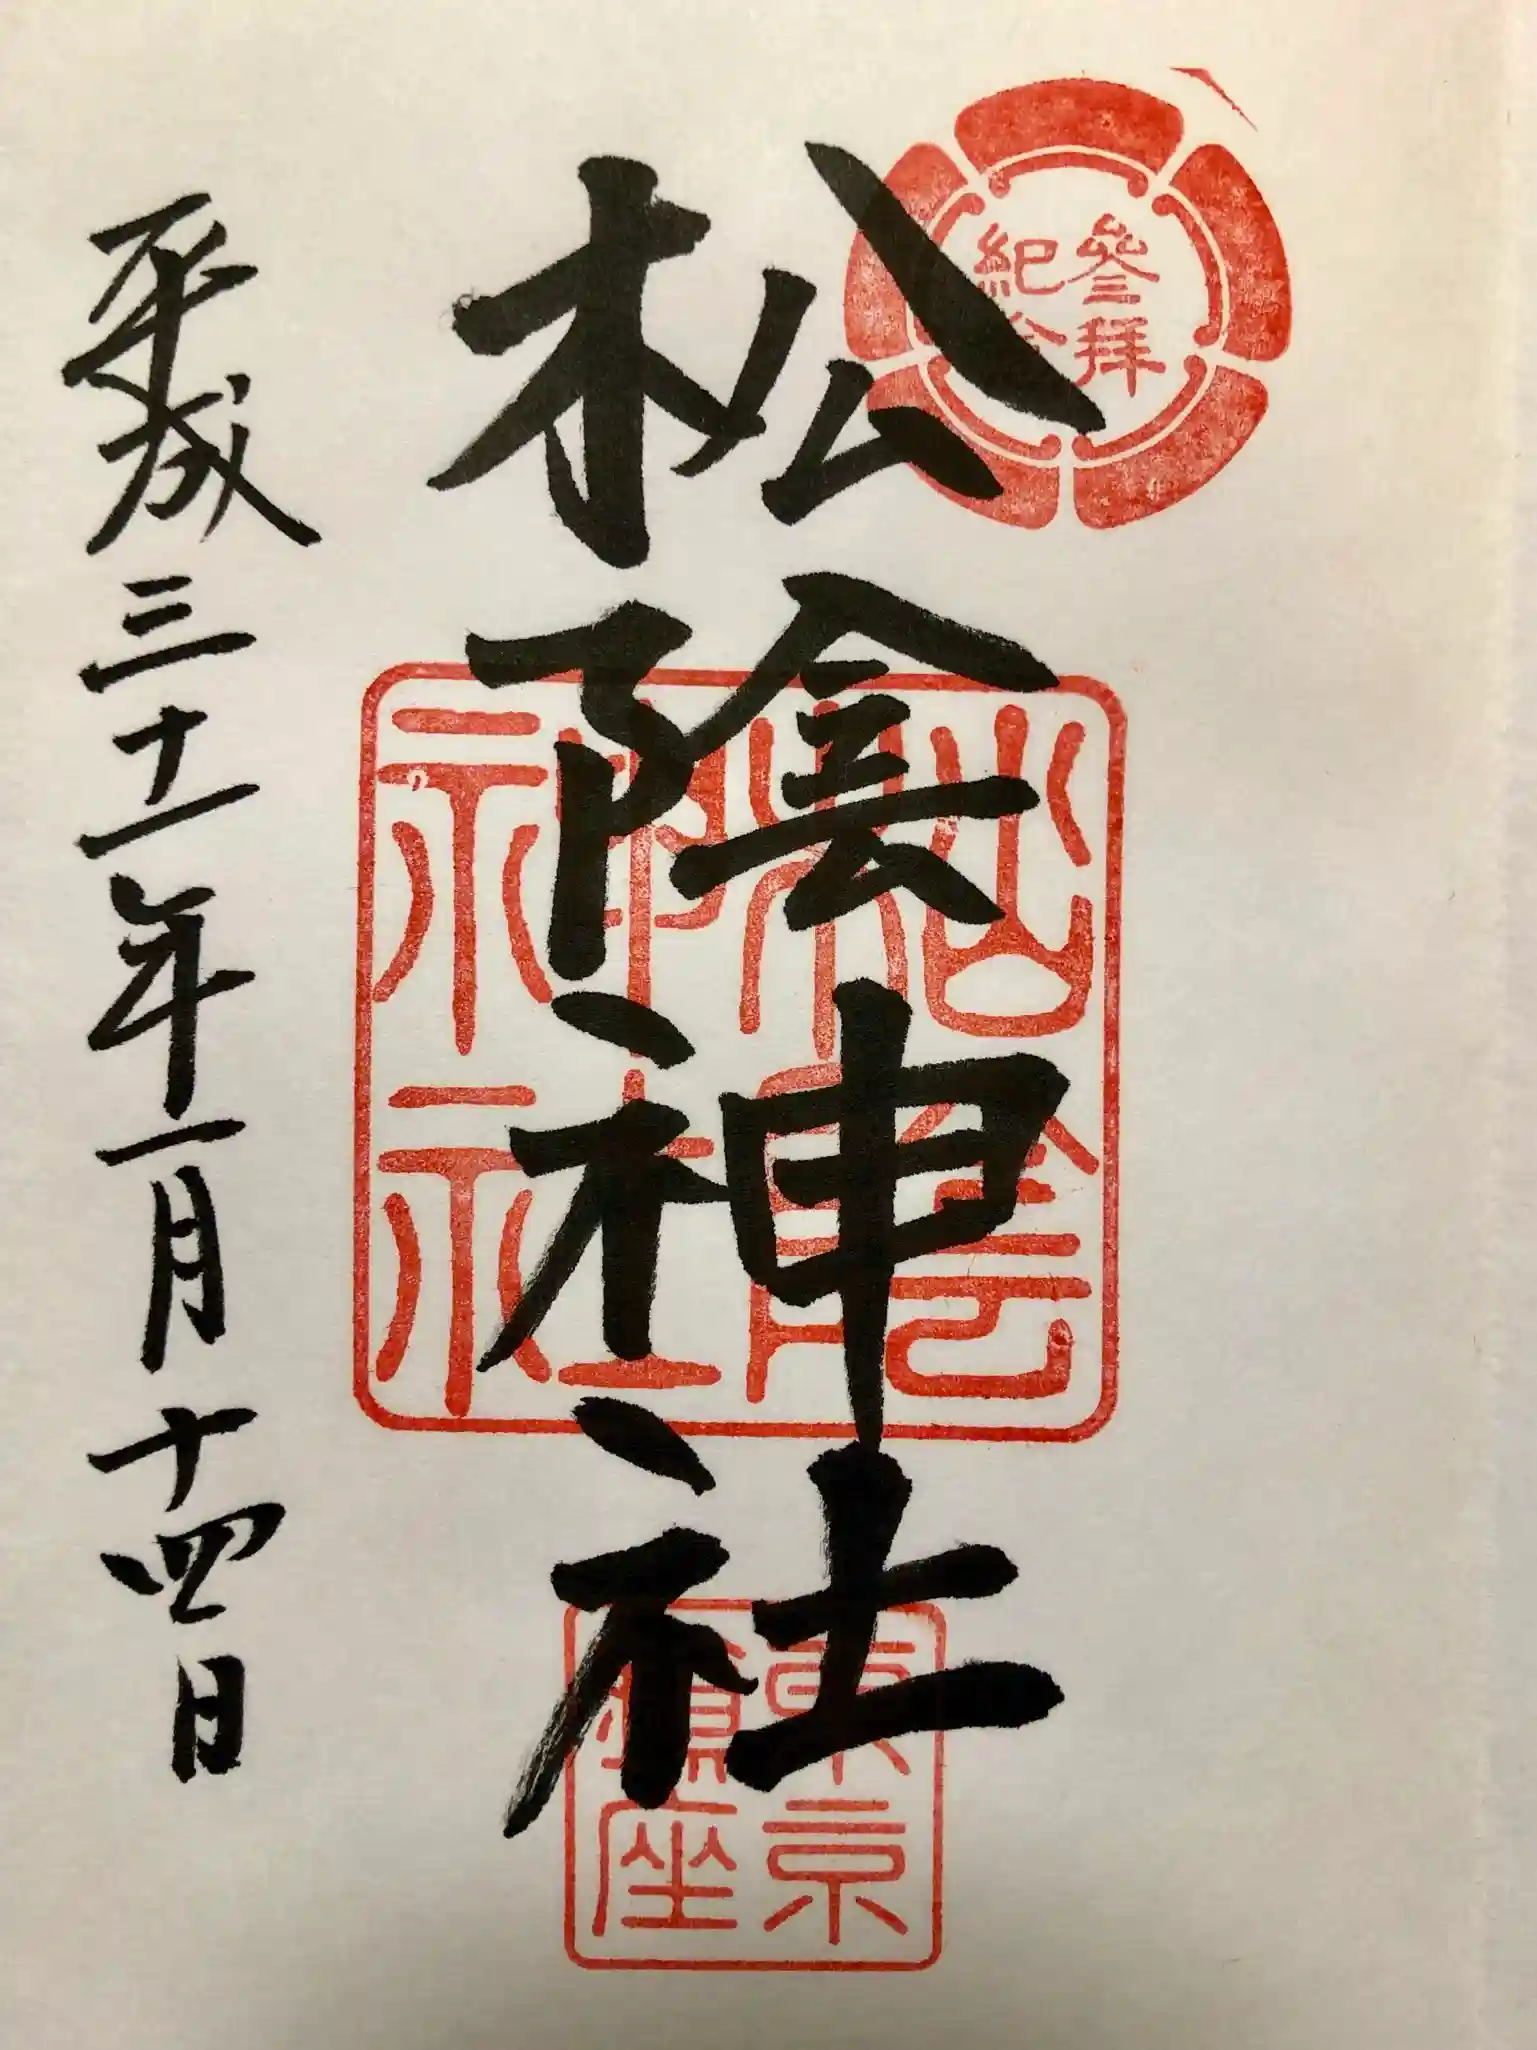 參拜
紀念
松陰神社
松陰
神社
東京
鎮座
平成三十一年一月十四日